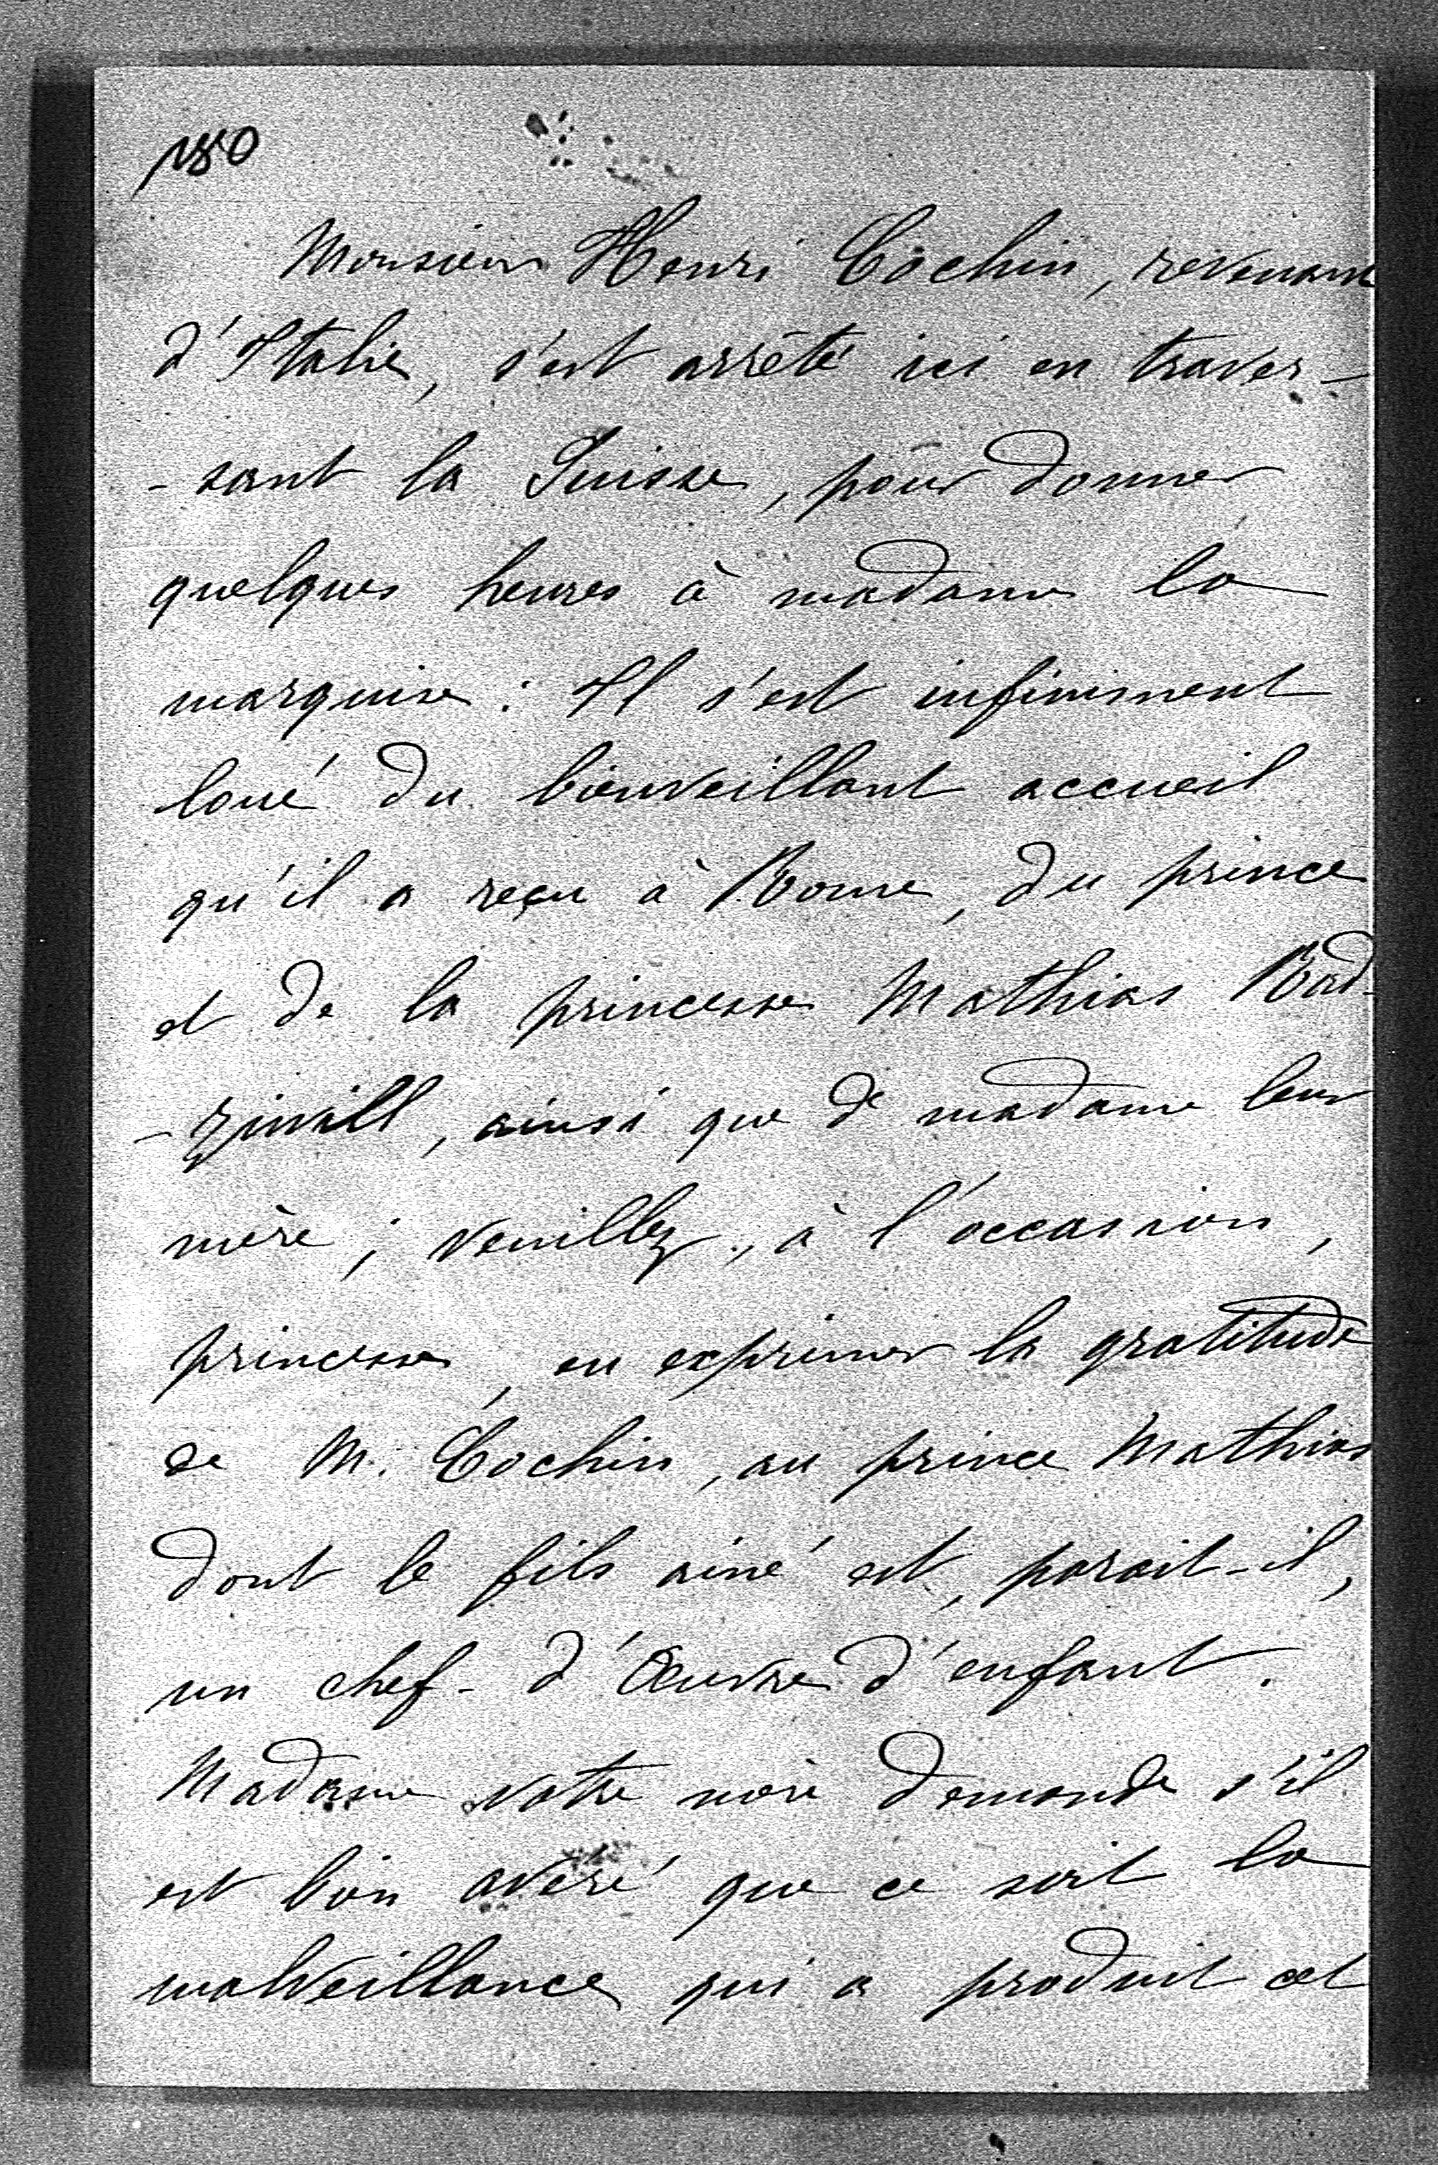 180
Monsieur Henri Cochin, revenant
d'Italie, s'est arrêté ici en traver-
-sant la Suisse, pour donner
quelques heures à madame la
marquise : Il s'est infiniment
loué du bienveillant accueil
qu'il a reçu à Rome, du prince
et de la princesse Mathias Rad-
-ziwill, ainsi que de madame leur
mère ; veuillez, à l'occasion,
princesse, en exprimer la gratitude
de M. Cochin, au prince Mathias
dont le fils ainé est, parait-il,
un chef-d'Œuvre d'enfant.
Madame votre mère demande s'il
est bien avéré que ce soit la
malveillance qui a produit cet